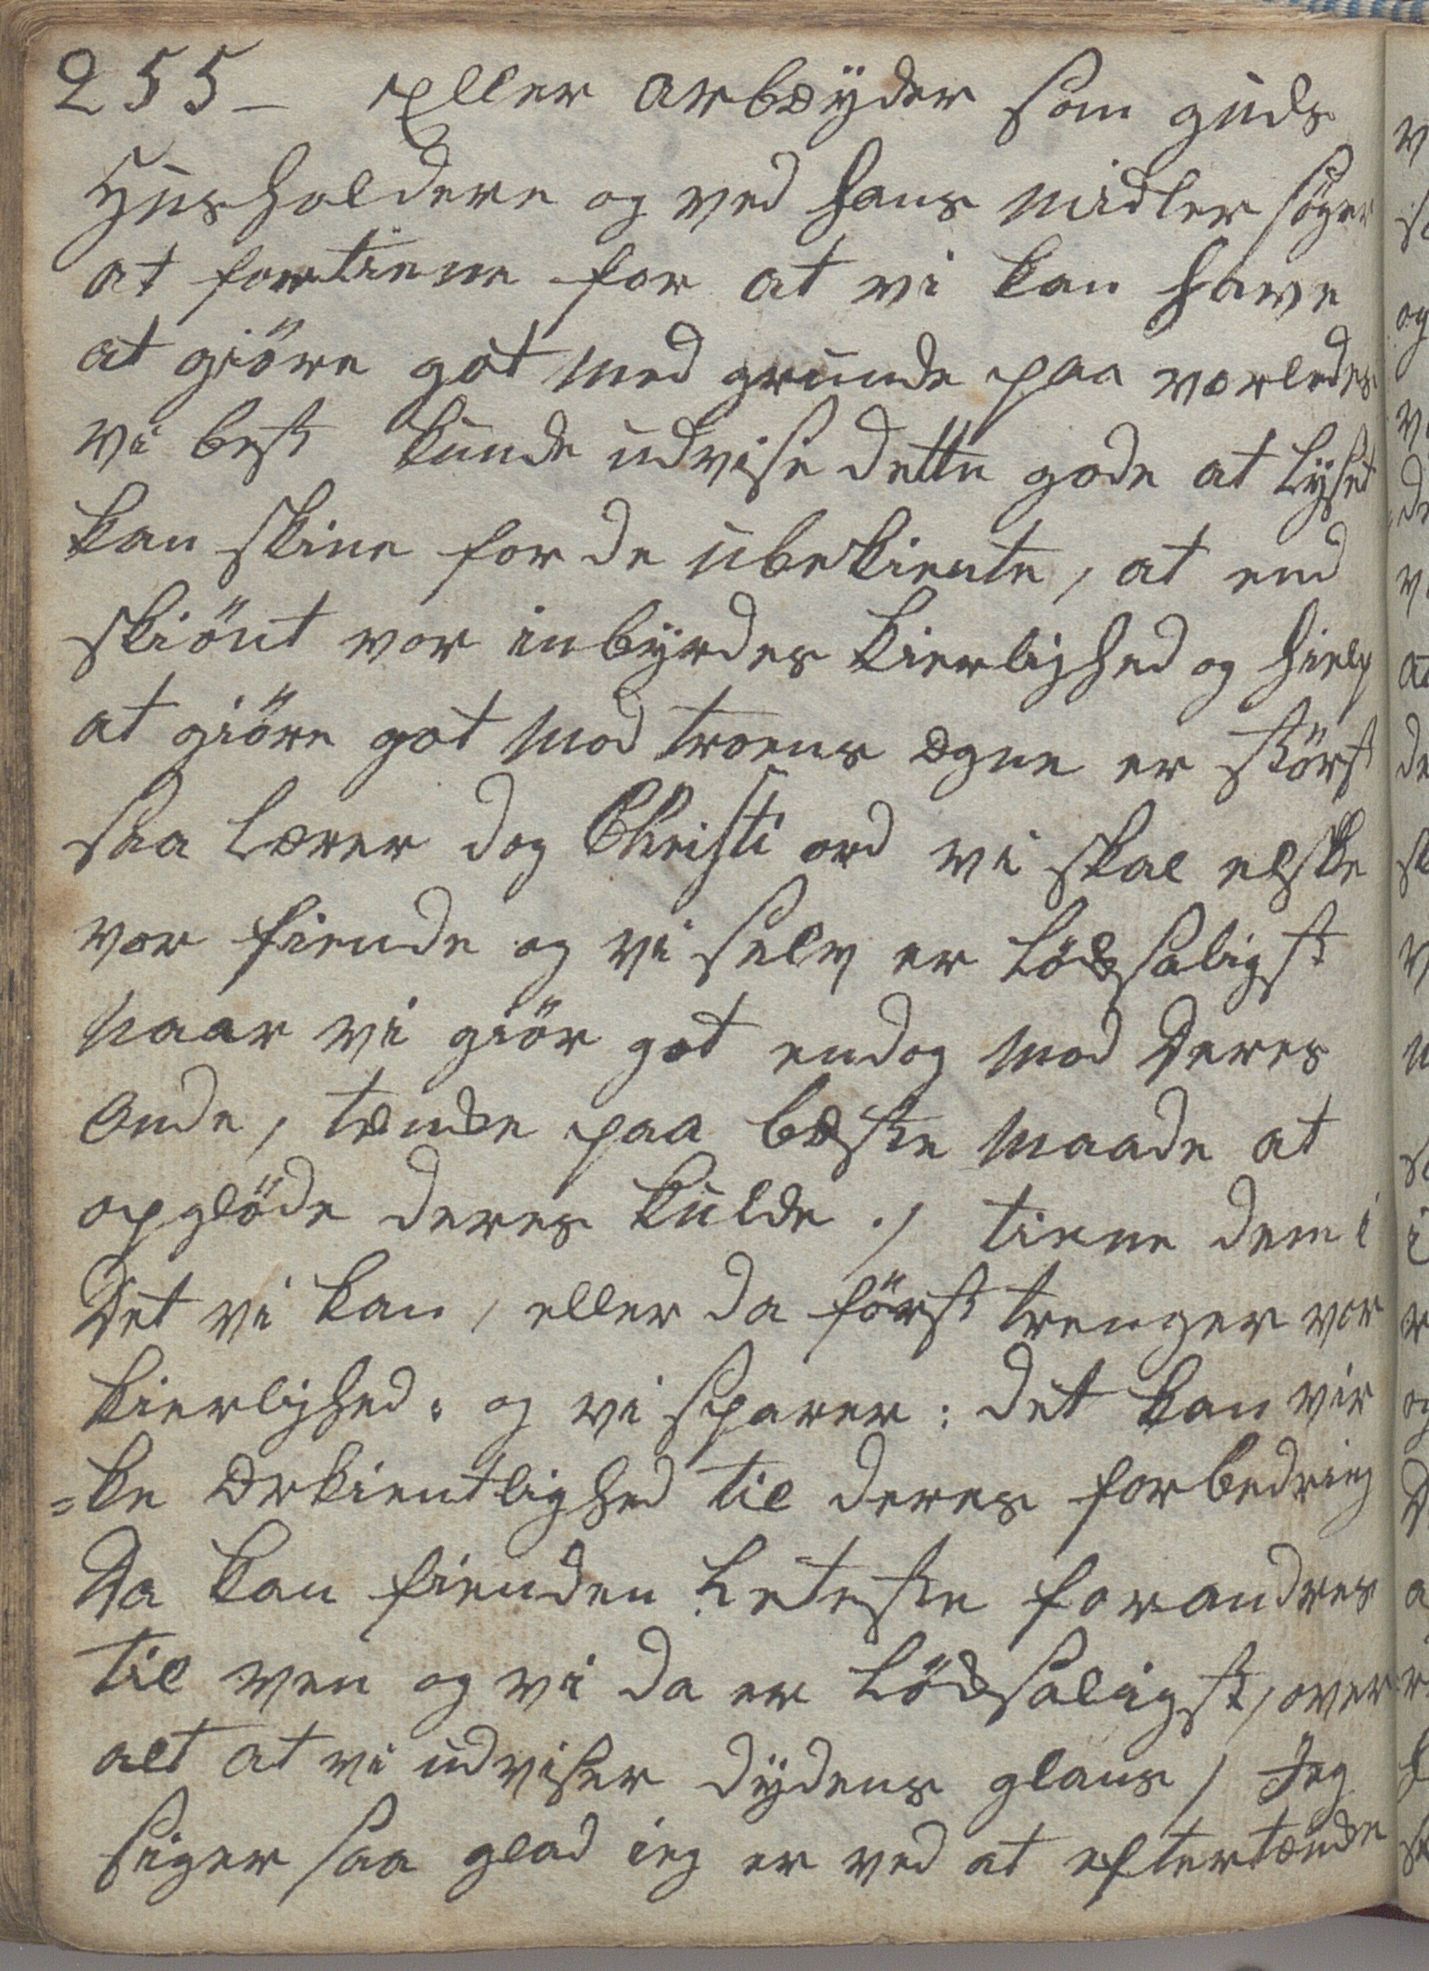 255 - Eller arbæÿder som guds
Huusholdere og ved hans midler söger
at fortiene for at vi kan have
at giöre got med grunde paa vorledes
vi best kunde udvise dette gode at Lÿset
kan skine for de ubekiente, at end
skiönt vor inbÿrdes kierlighed og hielp
at giöre got mod troens egne er störst
saa Lærer dog Christi ord vi skal elske
vor fiende og vi selv er Lÿksaligst
naar vi giör got endog mod Deres
Onde, tænke paa bæste maade at
opglöde deres kulde ./ tiene dem i
Det vi kan, eller da först trenger vor
kierlighed: og vi sparer: det kan vir
=ke Erkientlighed til deres forbedring
Da kan fienden Leteste forandres
til ven og vi da er Löksaligst, over
alt at vi udviser dÿdens glans / Jeg
siger saa glad ieg er ved at eftertænke